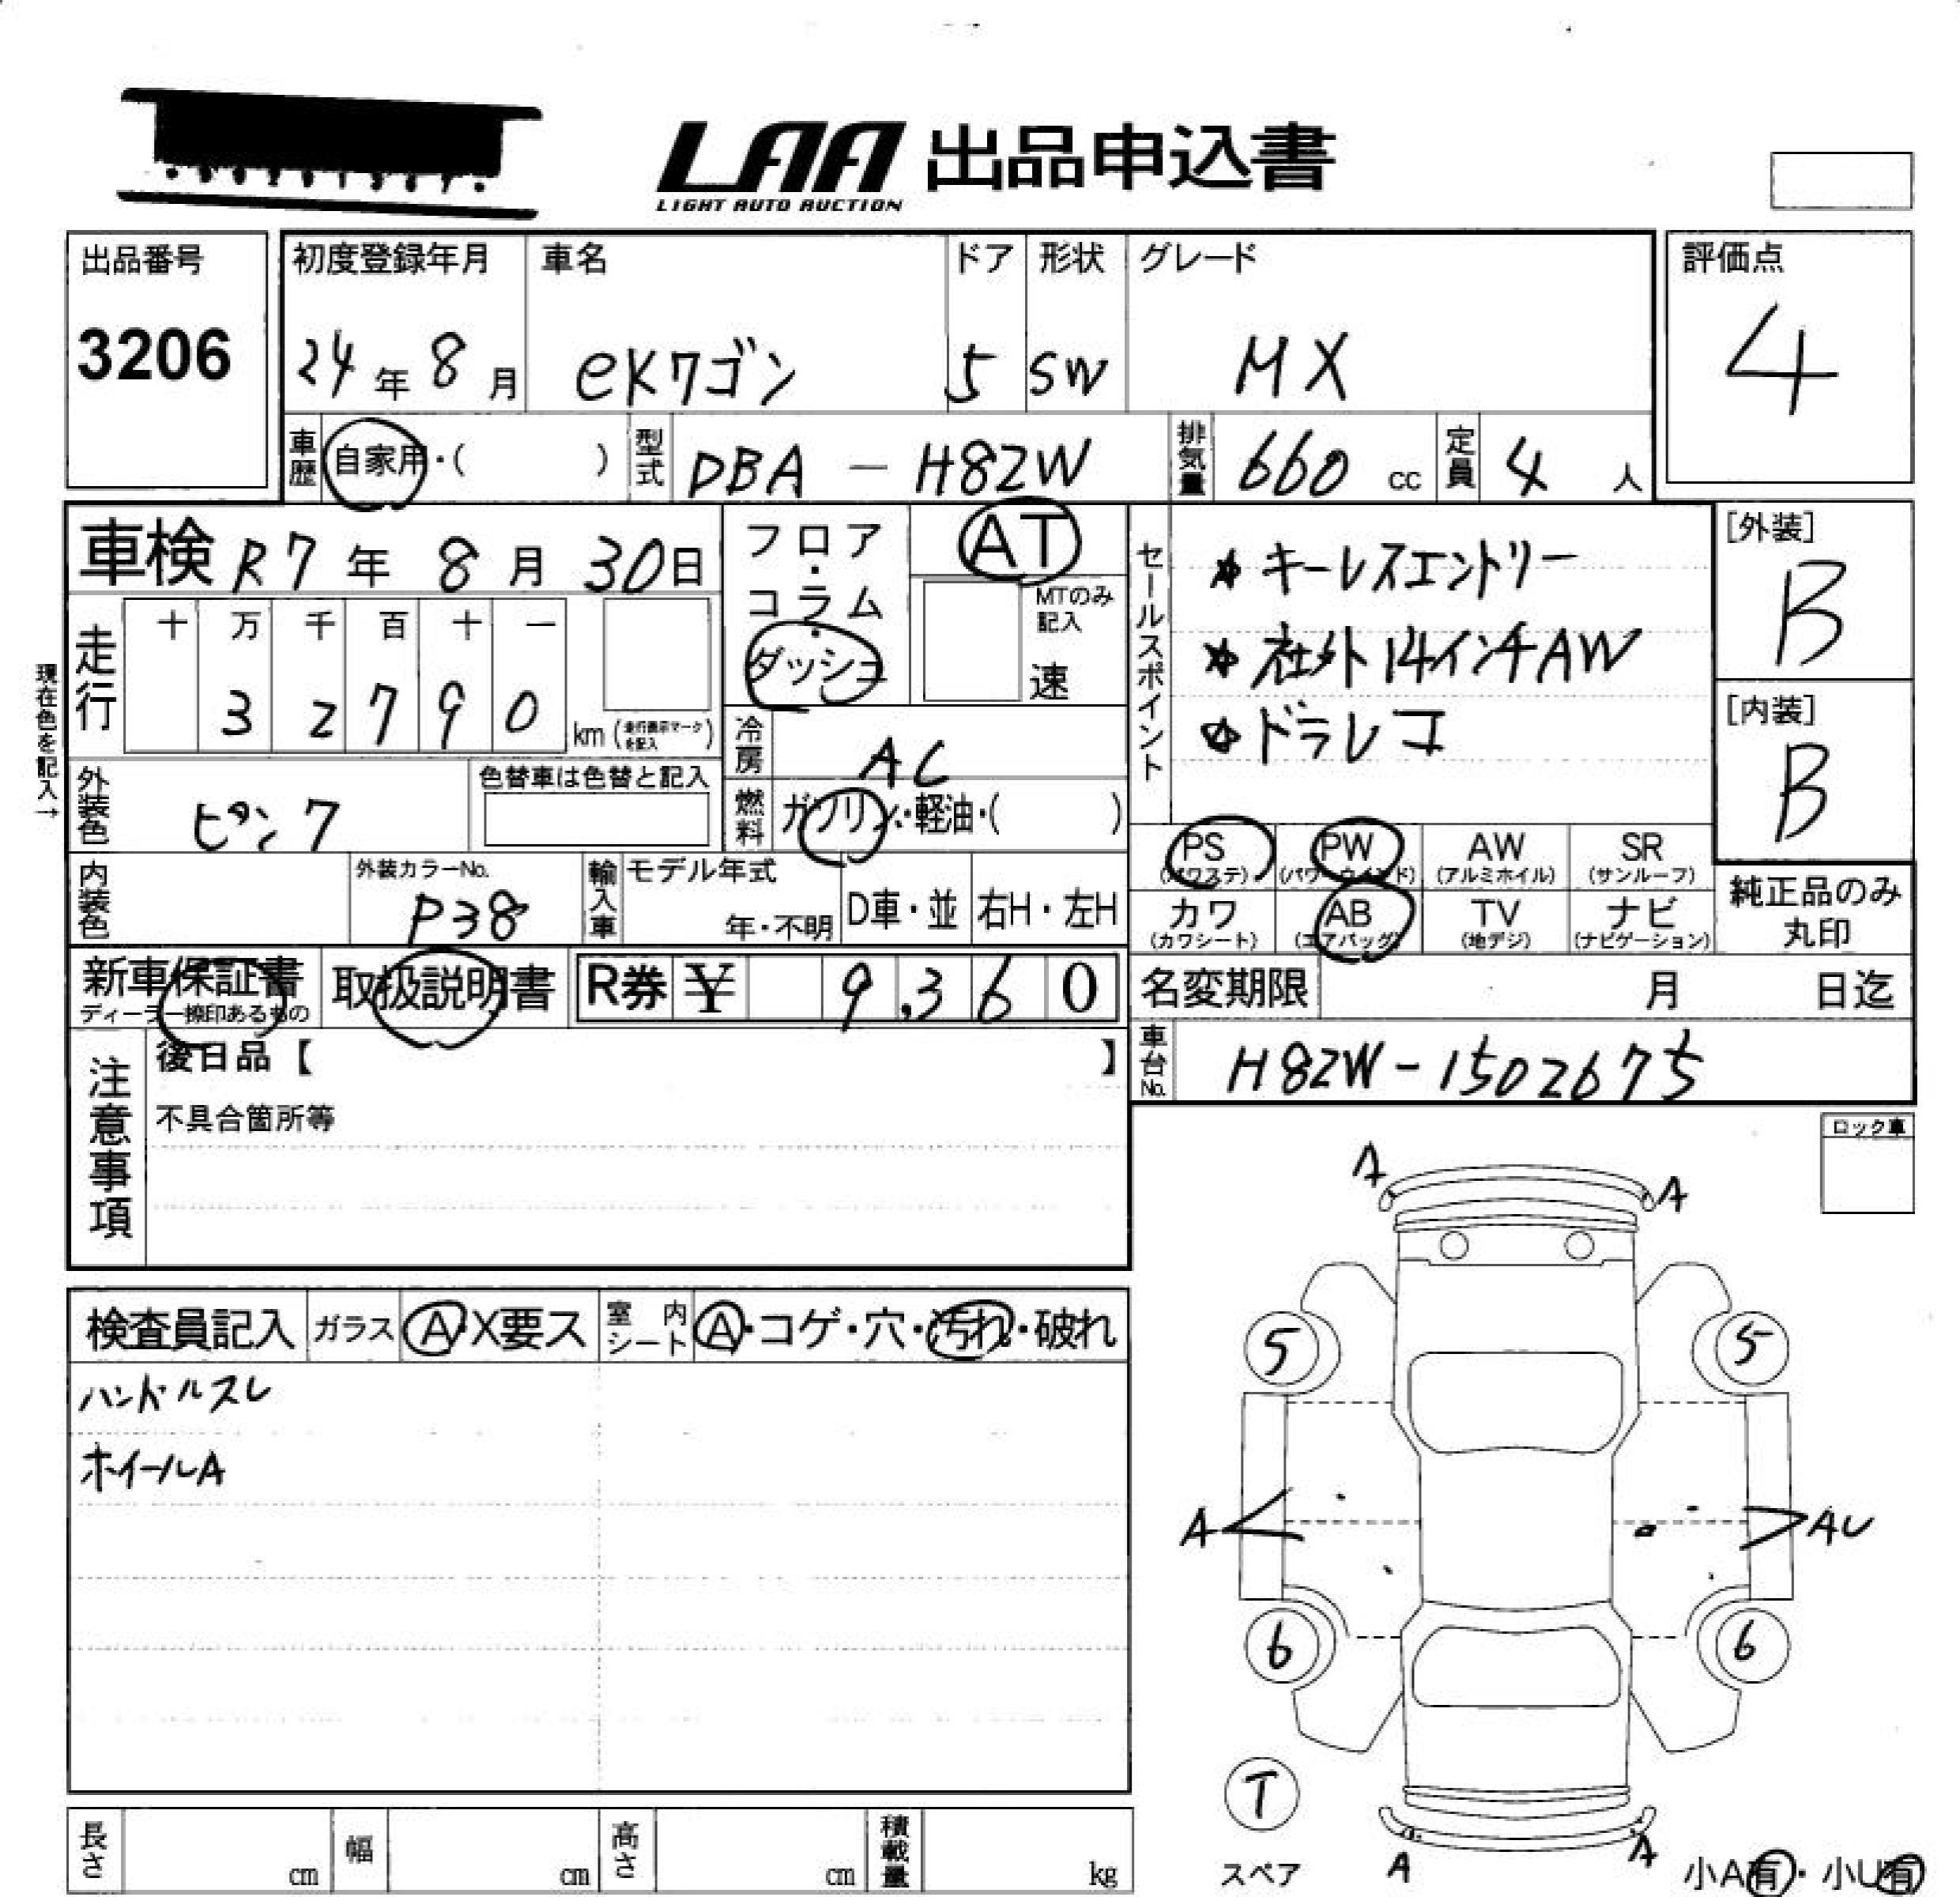 LAA 出品申込書
LIGHT AUTO AUCTION
出品番号
3206
初度登録年月
24年 8月
車名
eKワゴン
ドア
5
形状
SW
グレード
MX
評価点
4
車歴 自家用・( )
型式 DBA - H82W
排気量 660 cc
定員 4 人
車検 R7年 8月 30日
フロア・コラム・ダッシュ
AT
MTのみ記入
速
現在色を記入→
走行
十 万 千 百 十 一
3 2 7 9 0
km (走行表示マークを記入)
冷房 AC
燃料 ガソリン・軽油・( )
外装色 ピンク
色替車は色替と記入
内装色
外装カラーNo.
P38
輸入車
モデル年式
年・不明
D車・並
右H・左H
セールスポイント
☆キーレスエントリー
☆社外14インチAW
☆ドラレコ
[外装]
B
[内装]
B
PS (パワステ)
PW (パワーウインド)
AW (アルミホイル)
SR (サンルーフ)
カワ (カワシート)
AB (エアバッグ)
TV (地デジ)
ナビ (ナビゲーション)
純正品のみ丸印
新車保証書
ディーラー捺印あるもの
取扱説明書
R券 ¥ 9,360
名変期限 月 日迄
車台No. H82W-1502675
注意事項
後日品【 】
不具合箇所等
ロック車
検査員記入
ガラス A・X要ス
室内シート A・コゲ・穴・汚れ・破れ
ハンドルスレ
ホイールA
A
A
5
5
A
AU
6
6
T
スペア
A
A
小A有・小U有
長さ cm
幅 cm
高さ cm
積載量 kg